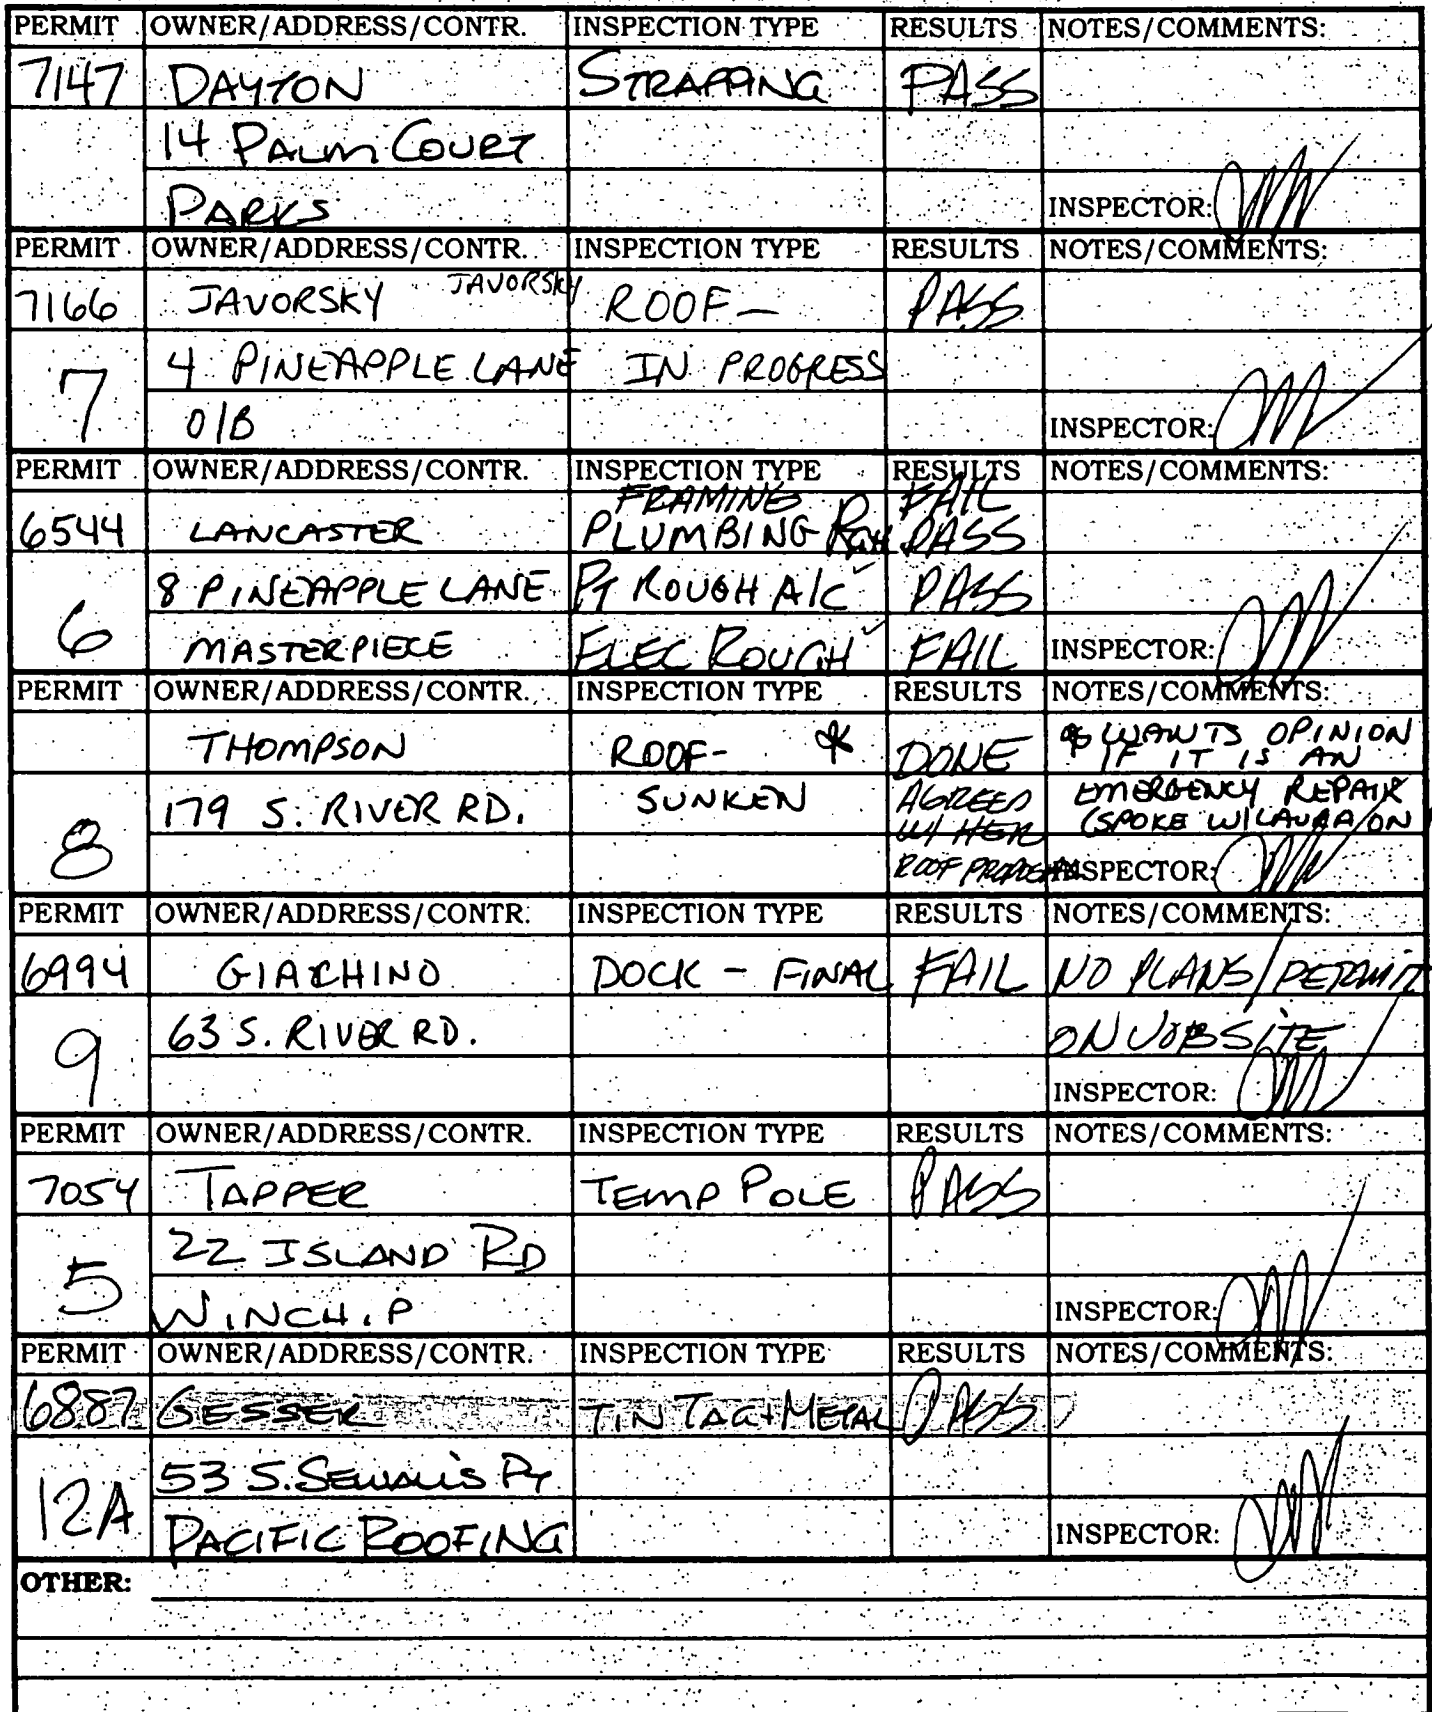 PERMIT OWNER/ADDRESS/CONTR. INSPECTION TYPE RESULTS NOTES/COMMENTS:
7147 DAYTON STRAPPING PASS
14 PALM COURT
PARKS INSPECTOR:
PERMIT OWNER/ADDRESS/CONTR. INSPECTION TYPE RESULTS NOTES/COMMENTS:
7166 JAVORSKY JAVORSKY ROOF- PASS
7 4 PINEAPPLE LANE IN PROGRESS
O/B INSPECTOR:
PERMIT OWNER/ADDRESS/CONTR. INSPECTION TYPE RESULTS NOTES/COMMENTS:
FRAMING FAIL
6544 LANCASTER PLUMBING RGH PASS
6 8 PINEAPPLE LANE PT ROUGH A/C PASS
MASTERPIECE ELEC ROUGH FAIL INSPECTOR:
PERMIT OWNER/ADDRESS/CONTR. INSPECTION TYPE RESULTS NOTES/COMMENTS:
THOMPSON ROOF- * DONE * WANTS OPINION
IF IT IS AN
8 179 S. RIVER RD. SUNKEN AGREED EMERGENCY REPAIR
W/ HER (SPOKE W/LAURA ON
ROOF INSPECTOR:
PERMIT OWNER/ADDRESS/CONTR. INSPECTION TYPE RESULTS NOTES/COMMENTS:
6994 GIACHINO DOCK - FINAL FAIL NO PLANS/PERMIT
9 63 S. RIVER RD. ON JOBSITE
INSPECTOR:
PERMIT OWNER/ADDRESS/CONTR. INSPECTION TYPE RESULTS NOTES/COMMENTS:
7054 TAPPER TEMP POLE PASS
5 22 ISLAND RD
WINCHIP INSPECTOR:
PERMIT OWNER/ADDRESS/CONTR. INSPECTION TYPE RESULTS NOTES/COMMENTS:
6887 GESSER TIN TAG+METAL PASS
12A 53 S. SEWALL'S PT
PACIFIC ROOFING INSPECTOR:
OTHER: